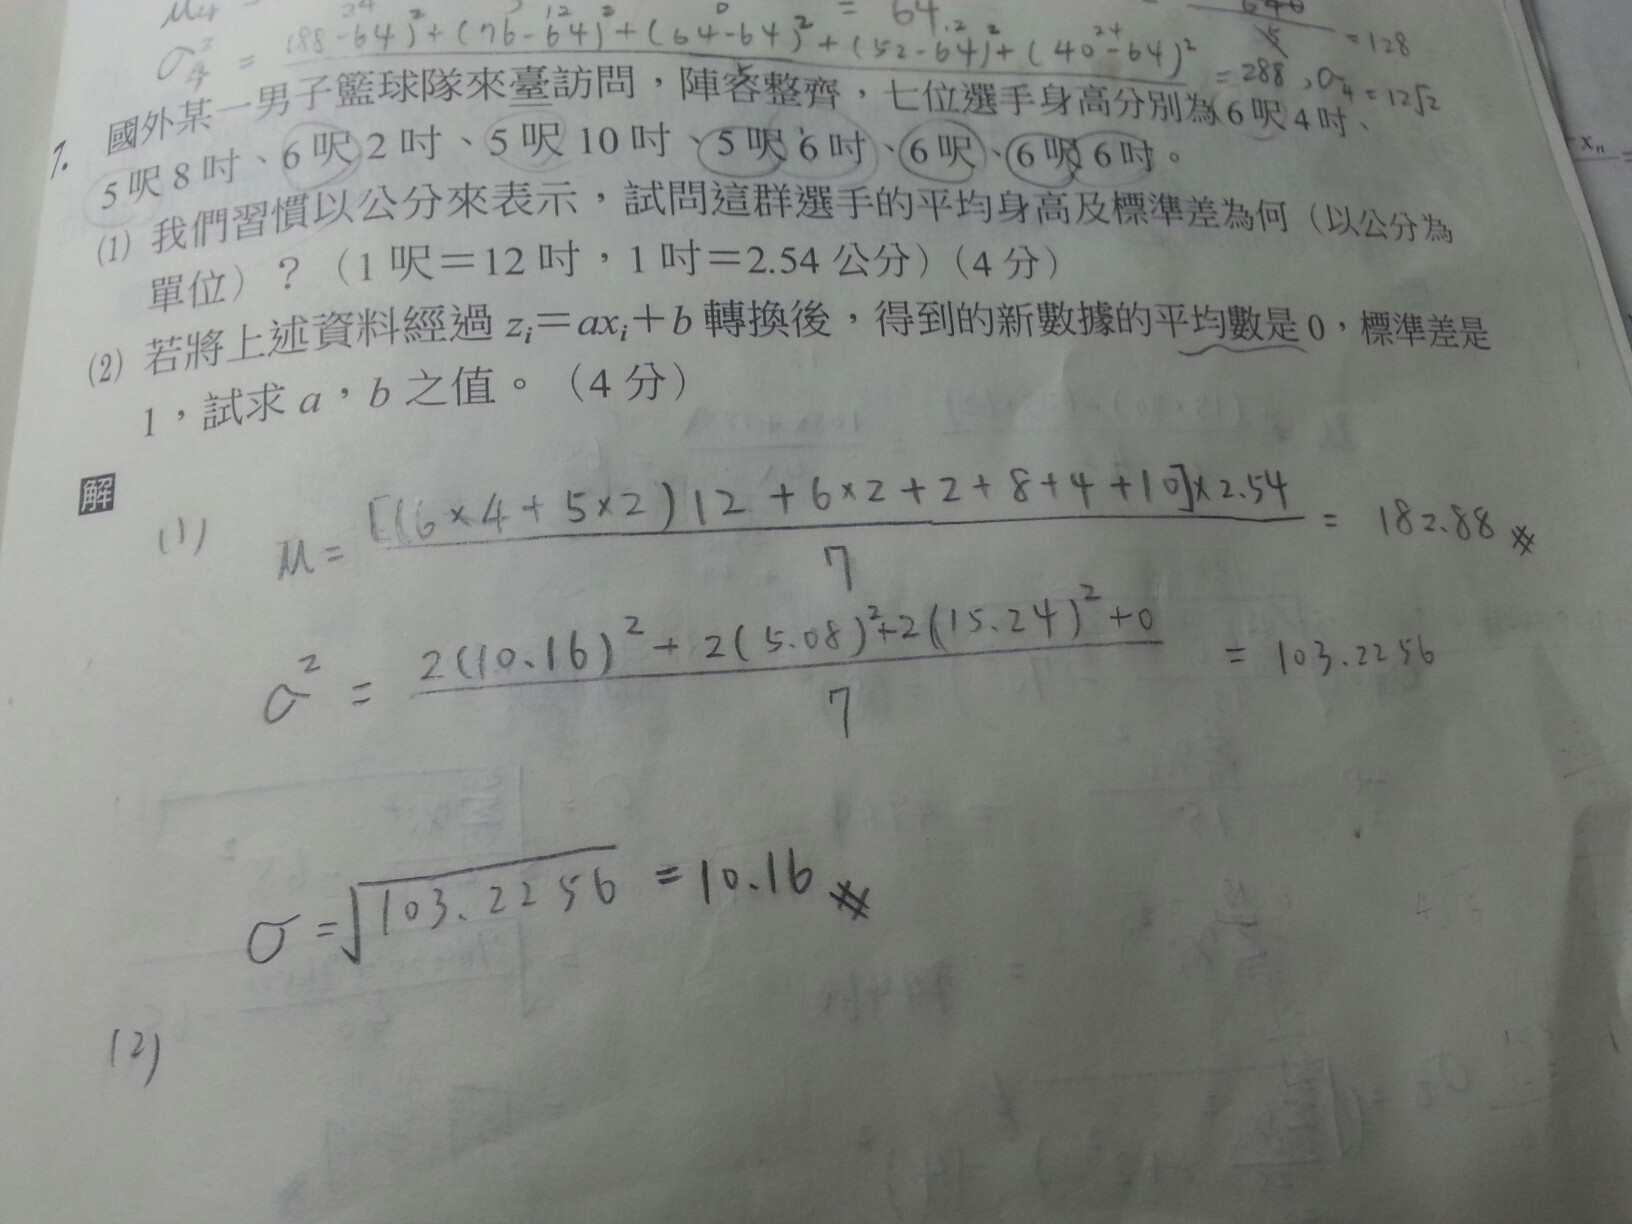 = 64
σ₄² = (88-64)²+(76-64)²+(64-64)²+(52-64)²+(40-64)² / 5 = 288, σ₄ = 12√2
640 = 128
7. 國外某一男子籃球隊來臺訪問，陣容整齊，七位選手身高分別為6呎4吋、
5呎8吋、6呎2吋、5呎10吋、5呎6吋、6呎、6呎6吋。
(1) 我們習慣以公分來表示，試問這群選手的平均身高及標準差為何（以公分為
單位）？（1呎＝12吋，1吋＝2.54公分）（4分）
(2) 若將上述資料經過 zᵢ＝axᵢ＋b 轉換後，得到的新數據的平均數是0，標準差是
1，試求 a，b 之值。（4分）
解
(1) M = [(6×4+5×2)12+6×2+2+8+4+10]×2.54 / 7 = 182.88
σ² = 2(10.16)²+2(5.08)²+2(15.24)²+0 / 7 = 103.2256
σ = √103.2256 = 10.16
(2)